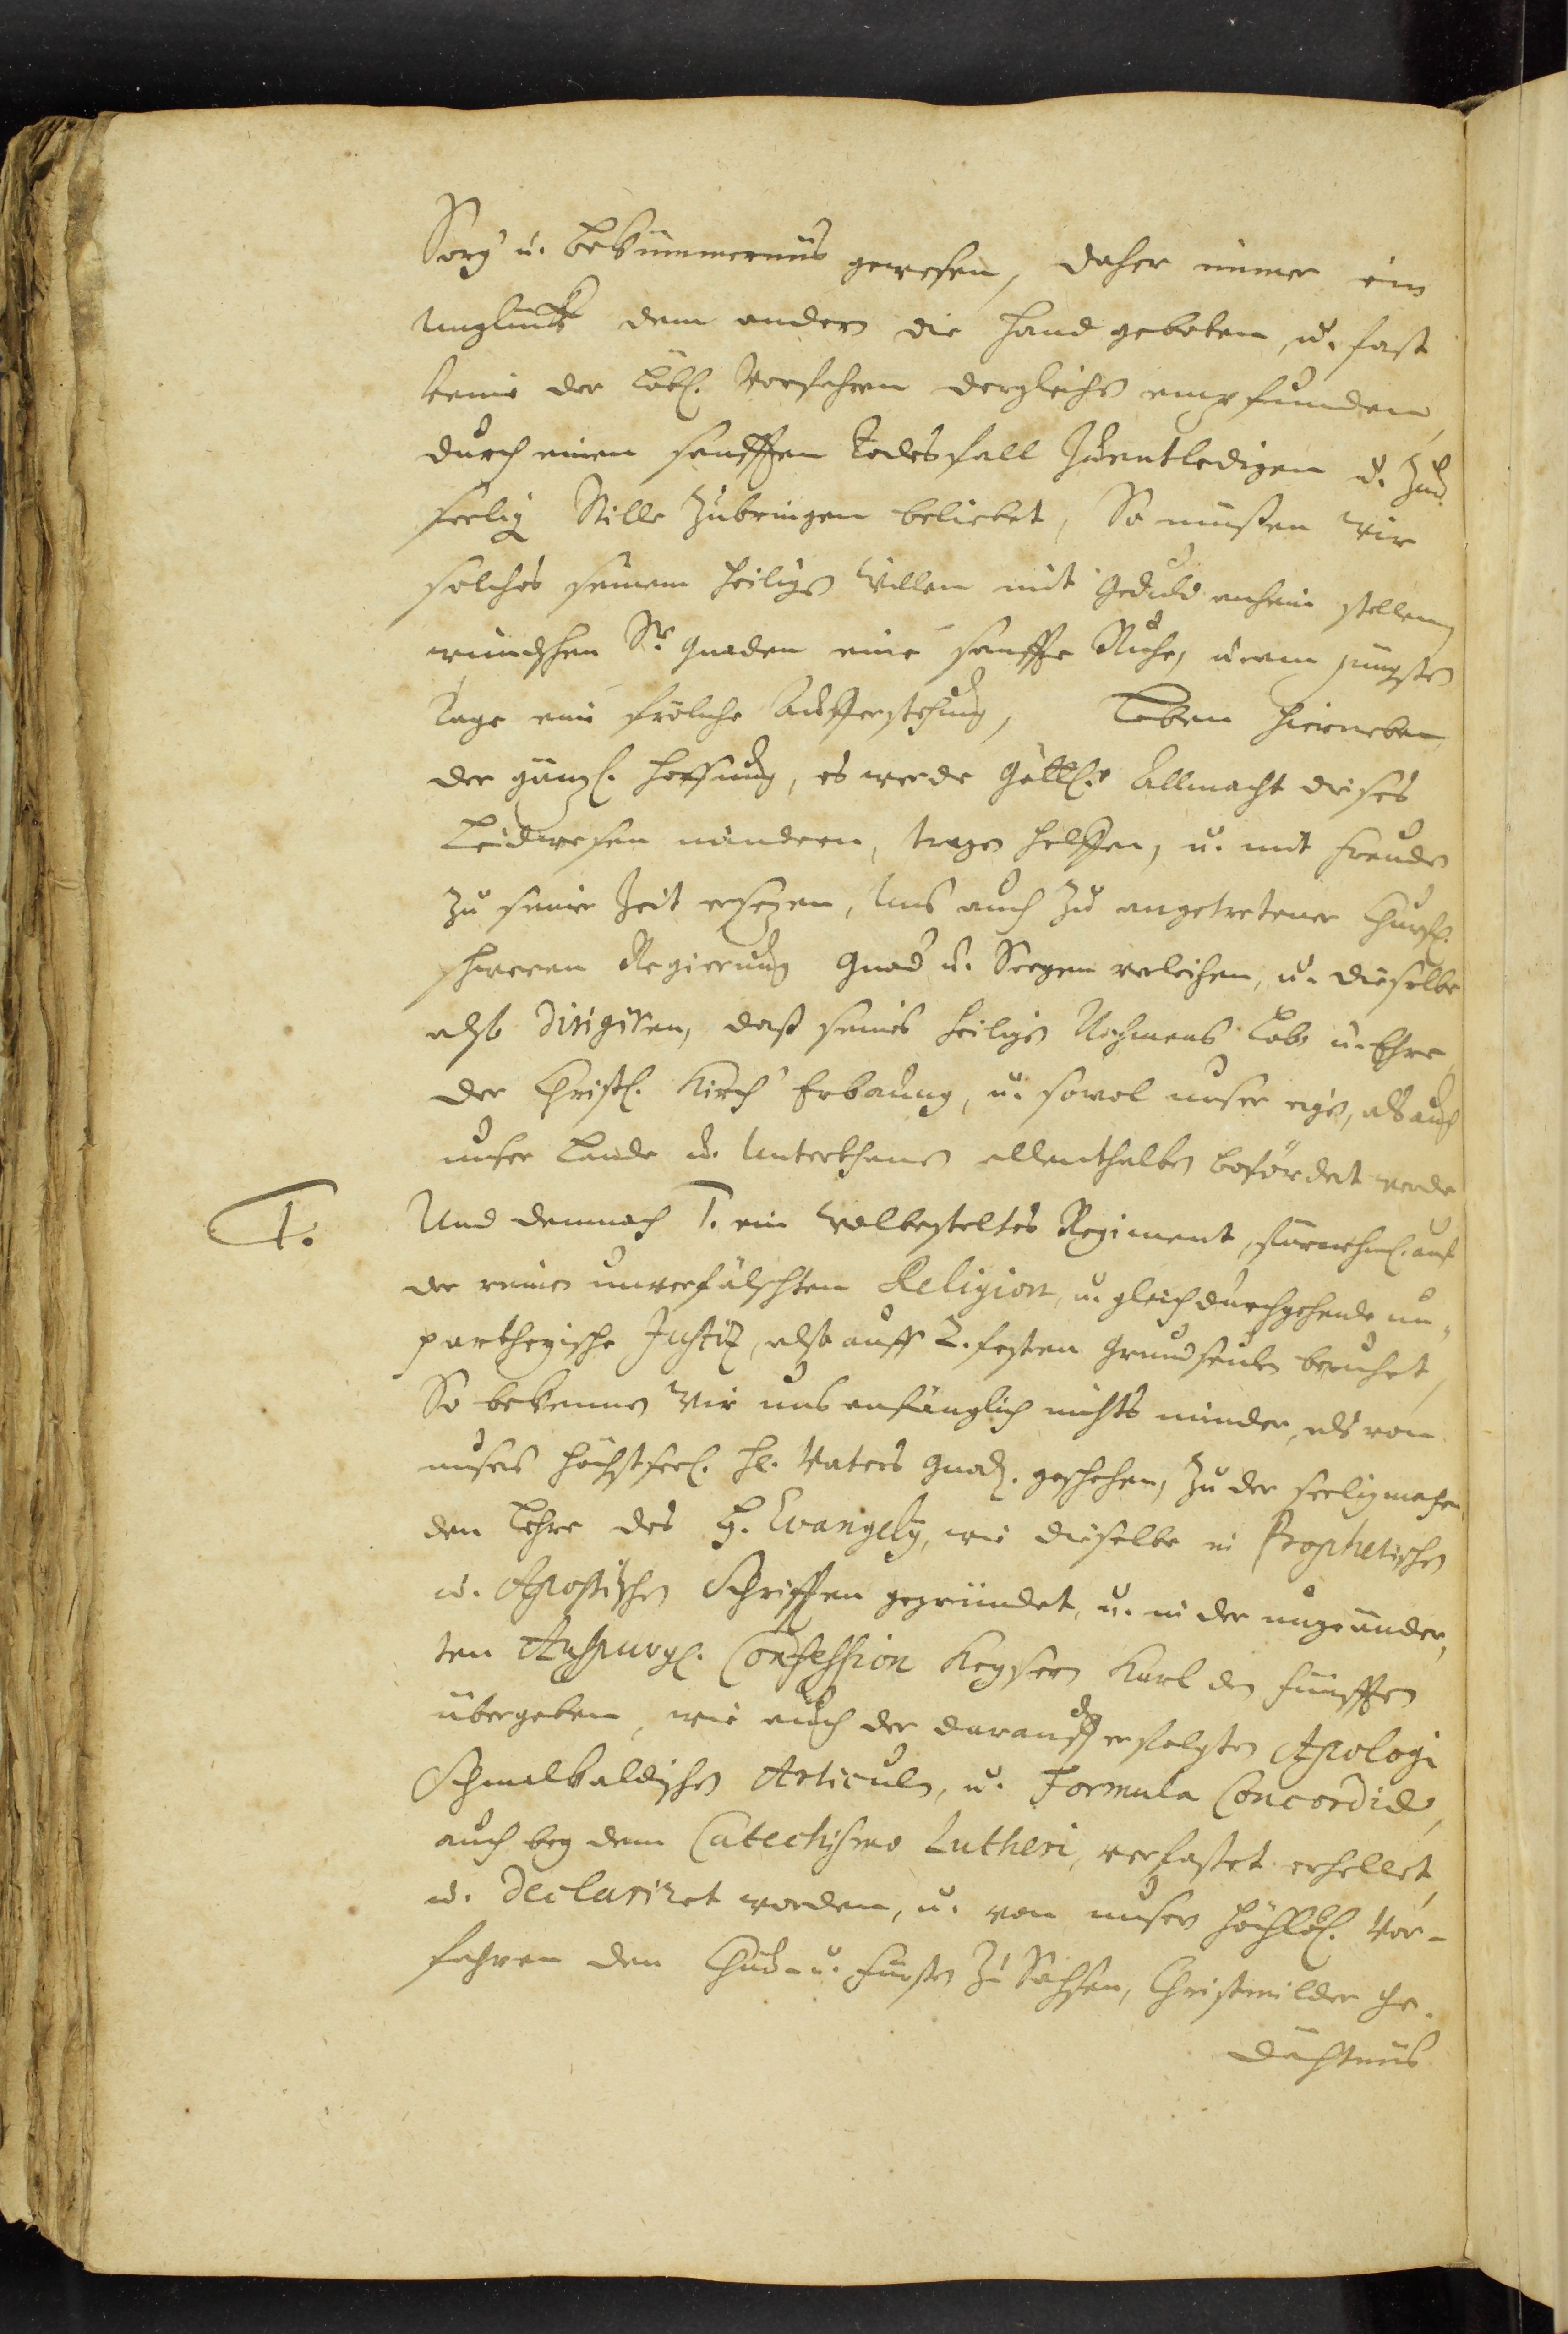 Sorg u. Bekümmernüs gewesen, daher immer ein
Unglück dem andern die Hand geboten, u. fast
keine der Löbl. Vorfahren dergleichen empfunden,
durch einen sanfften Todesfall zuentledigen u. zur
seelig Stille zubringen beliebet, So müßen wir
solches seinem heiligen Willen mit Gedult anheim stellen,
wündschen Sr. Gnaden eine sanffte Ruhe, u. am jüngsten
Tage eine fröliche Aufferstehung, Leben hierneben
der gäntzl. Hoffnung, es werde Göttl. Allmacht dieses
Leidwesen mindern, tragen helffen, u. mit Freuden
zu seiner Zeit ersezen, Uns auch zu angetretener Churfl.
schweren Regierung Gnad u. Seegen verleihen, u. dieselbe
also dirigiren, daß seines heiligen Nahmens Lob u. Ehre,
der Christl. Kirch Erbauung, u. sowol unser eigen, als auch
unser Lande u. Unterthanen allenthalben befördert werde
T. Und demnach T. ein wolbesteltes Regiment, fürnehml. auf
der reinen unverfälschten Religion, u. gleich durchgehende un-
partheyische Justiz, also auff 2. festen Grundseulen beruhet,
So bekennen Wir uns anfänglich nichts minder, als von
unsers höchstseel. H. Vaters Gnad. geschehen, zu der seeligmachen
den Lehre des H. Evangely, wie dieselbe in Prophetischen
u. Apostischen Schrifften gegründet, u. in der ungeänder-
ten Auspurgl. Confession Keysern Karl den Fünfften
übergeben, wie auch der darauff erfolgten Apologi
Schmalkaldischen Articuln, u. Formula Concordiæ,
auch bey dem Catechismo Lutheri, verfasset erhellet,
u. declariret worden, u. von unsern höchstlöbl. Vor-
fahren den Chur- u. Fürsten zu Sachsen, Christmilder Ge-
dächtnüs